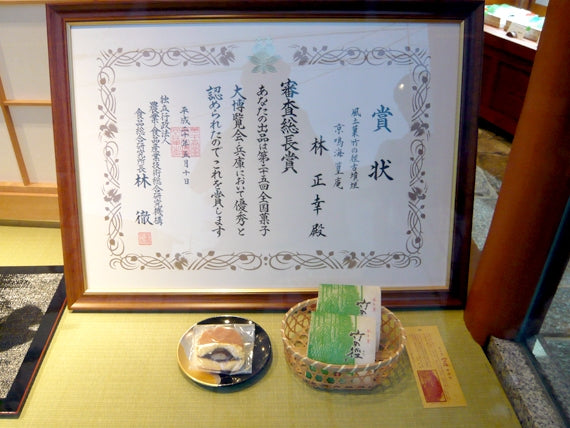 賞状
風土菓 竹の径古墳短
京 鳴海屋 菓庵
林 正幸 殿
審査総長賞
あなたの出品は第二十五回全国菓子
大博覧会・兵庫において優秀と
認められたのでこれを賞します
平成二十年五月十日
独立行政法人
農業・食品産業技術総合研究機構
食品総合研究所長 林 徹
竹の径